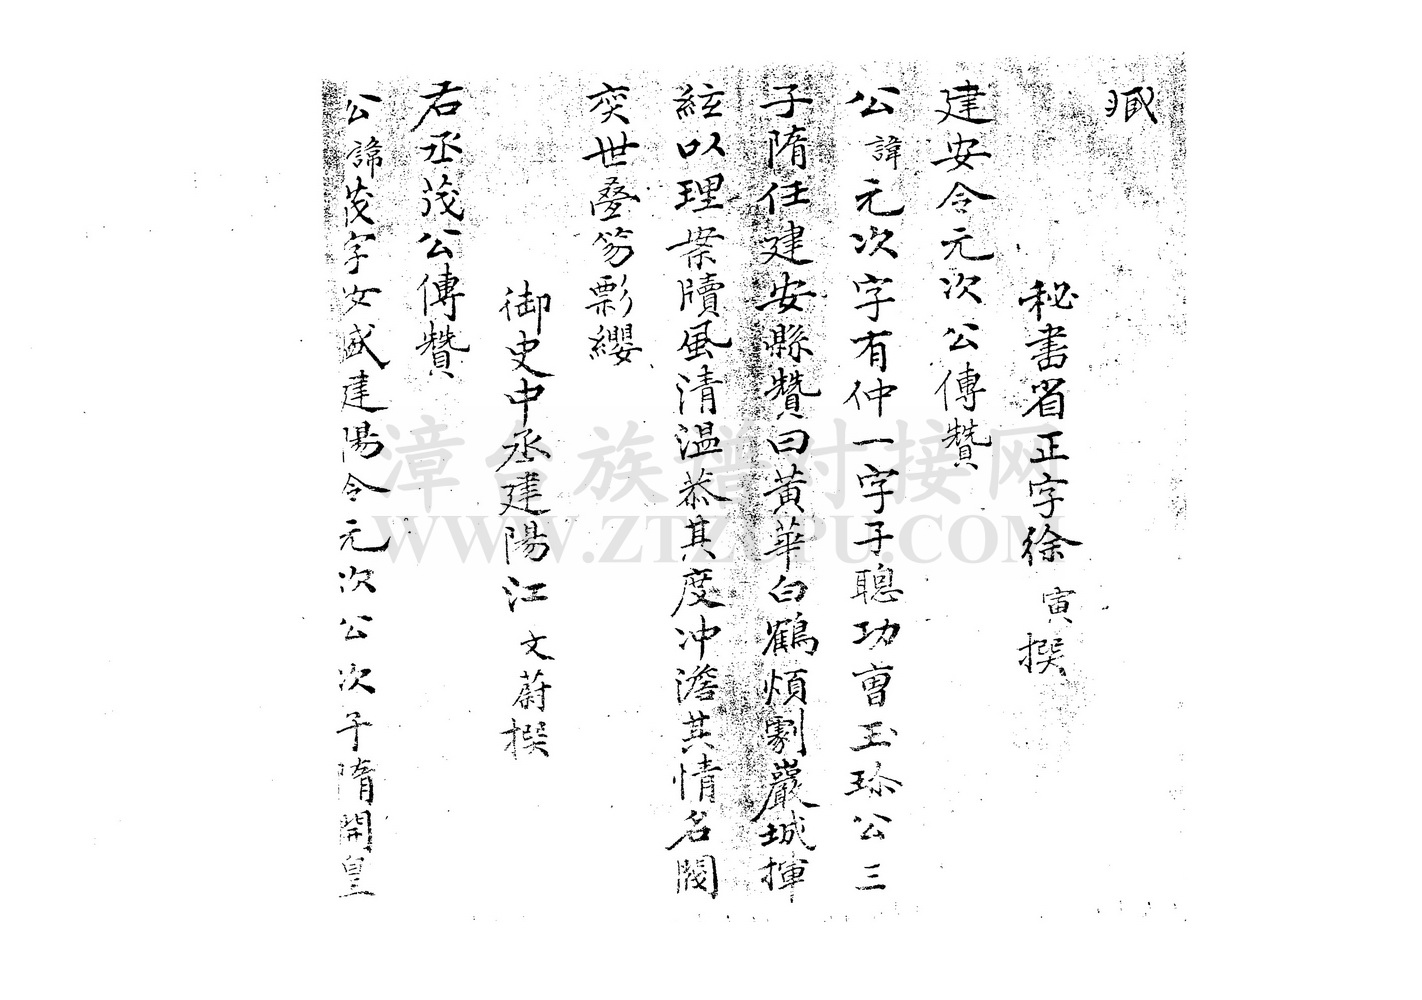 臧
秘書省正字徐寅撰
建安令元次公傳贊
公諱元次字有仲一字子聰功曹玉珎公三
子隋任建安縣贊曰黃華白鶴煩劇巖城揮
絃以理案牘風清溫恭其度冲澹其情名閥
奕世疊笏彯纓
御史中丞建陽江文蔚撰
右丞茂公傳贊
公諱茂字文盛建陽令元次公次子隋開皇
漳台族谱对接网
WWW.ZTZUPU.COM